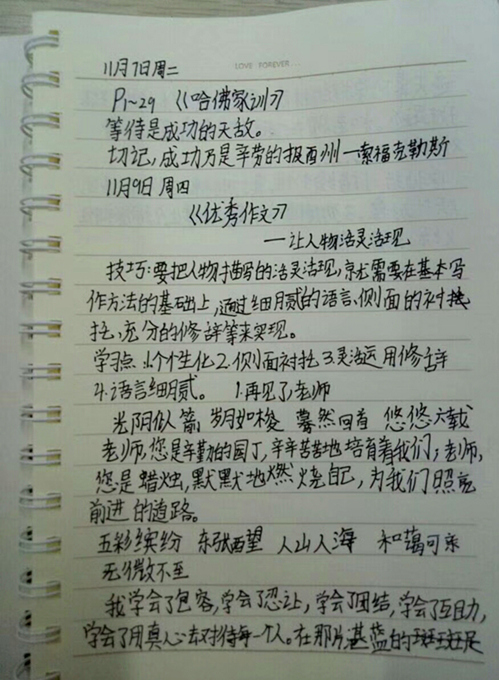 LOVE FOREVER...
11月7日周二
P1~29 《哈佛家训》
等待是成功的天敌。
切记,成功乃是辛劳的报酬—索福克勒斯
11月9日 周四
《优秀作文》
——让人物活灵活现
技巧:要把人物描写的活灵活现,就需要在基本写
作方法的基础上,通过细腻的语言、侧面的衬
托,充分的修辞等来实现。
学习点:1.个性化 2.侧面衬托 3.灵活运用修辞
4.语言细腻。 1.再见了,老师
光阴似箭,岁月如梭 蓦然回首 悠悠六载
老师,您是辛勤的园丁,辛辛苦苦地培育着我们;老师,
您是蜡烛,默默地燃烧自己,为我们照亮
前进的道路。
五彩缤纷 东张西望 人山人海 和蔼可亲
无微不至
我学会了包容,学会了忍让,学会了团结,学会了互助,
学会了用真心去对待每一个人。在那片湛蓝的